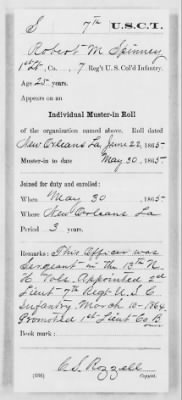 S 7th U.S.C.T.
Robert M Spinney
1st Lt, Co., 7 Reg't U.S. Col'd Infantry.
Age 25 years.
Appears on an
Individual Muster-in Roll
of the organization named above. Roll dated
New Orleans La, June 22, 1865
Muster-in to date May 30, 1865
Joined for duty and enrolled:
When May 30, 1865
Where New Orleans La
Period 3 years.
Remarks: This Officer was
Sergeant in the 13th N.
H Vols. Appointed 2d
Lieut 7th Regt U.S.C
Infantry March 10-1864
Promoted 1st Lieut Co B
Book mark:
Copyist.